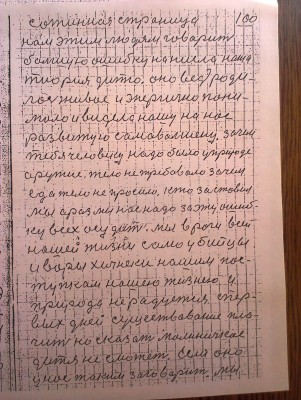 сотинная страница 100
нам этим людям говорит
большую ошибку нанесла наша
теория дитю, оно без роди-
лос живое и энергично пони-
мало и видело нашу на нас
развитую самоволщину. зачим
тебя человику надо было у природе
оружие, тело не требовало зачим
еда тело не просили, хто заставил
мы аразм нас надо за эту ошиб-
ку всех осудит. мы враги всей
нашей жизни само убийцы
и воры хичники нашим пос-
тупкам нашею жизнею и
природа не радуится спер-
вых дней существование пла-
чит но сказат малиничкое
дитя не сможет. если оно
у нас таким заговарит. мы